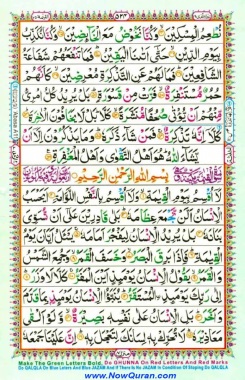 ۵۲۳
نُطْعِمُ الْمِسْكِيْنَ وَكُنَّا نَخُوْضُ مَعَ الْخَآئِضِيْنَ وَكُنَّا نُكَذِّبُ
بِيَوْمِ الدِّيْنِ حَتّٰٓى اَتٰىنَا الْيَقِيْنُ فَمَا تَنْفَعُهُمْ شَفَاعَةُ
الشّٰفِعِيْنَ فَمَا لَهُمْ عَنِ التَّذْكِرَةِ مُعْرِضِيْنَ كَاَنَّهُمْ
حُمُرٌ مُّسْتَنْفِرَةٌ فَرَّتْ مِنْ قَسْوَرَةٍ بَلْ يُرِيْدُ كُلُّ امْرِئٍ
مِّنْهُمْ اَنْ يُّؤْتٰى صُحُفًا مُّنَشَّرَةً كَلَّا بَلْ لَّا يَخَافُوْنَ الْاٰخِرَةَ
كَلَّآ اِنَّهٗ تَذْكِرَةٌ فَمَنْ شَآءَ ذَكَرَهٗ وَمَا يَذْكُرُوْنَ اِلَّآ اَنْ
يَّشَآءَ اللّٰهُ هُوَ اَهْلُ التَّقْوٰى وَاَهْلُ الْمَغْفِرَةِ
بِسْمِ اللّٰهِ الرَّحْمٰنِ الرَّحِيْمِ
لَآ اُقْسِمُ بِيَوْمِ الْقِيٰمَةِ وَلَآ اُقْسِمُ بِالنَّفْسِ اللَّوَّامَةِ اَيَحْسَبُ
الْاِنْسَانُ اَلَّنْ نَّجْمَعَ عِظَامَهٗ بَلٰى قٰدِرِيْنَ عَلٰٓى اَنْ نُّسَوِّىَ
بَنَانَهٗ بَلْ يُرِيْدُ الْاِنْسَانُ لِيَفْجُرَ اَمَامَهٗ يَسْئَلُ اَيَّانَ يَوْمُ
الْقِيٰمَةِ فَاِذَا بَرِقَ الْبَصَرُ وَخَسَفَ الْقَمَرُ وَجُمِعَ الشَّمْسُ
وَالْقَمَرُ يَقُوْلُ الْاِنْسَانُ يَوْمَئِذٍ اَيْنَ الْمَفَرُّ كَلَّا لَا وَزَرَ
اِلٰى رَبِّكَ يَوْمَئِذِ الْمُسْتَقَرُّ يُنَبَّؤُا الْاِنْسَانُ يَوْمَئِذٍ بِمَا قَدَّمَ وَ
اَخَّرَ بَلِ الْاِنْسَانُ عَلٰى نَفْسِهٖ بَصِيْرَةٌ وَّلَوْ اَلْقٰى
مَعَاذِيْرَهٗ لَا تُحَرِّكْ بِهٖ لِسَانَكَ لِتَعْجَلَ بِهٖ اِنَّ عَلَيْنَا جَمْعَهٗ
Make The Green Letters Bold, Do GHUNNA On Red Letters And Red Marks
Do QALQLA On Blue Letters And Blue JAZAM And If There Is No JAZAM In Condition Of Stoping Do QALQLA
www.NowQuran.com